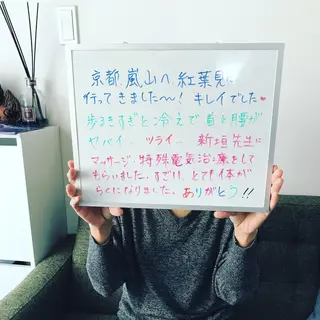 京都、嵐山へ紅葉見に
行ってきました〜! キレイでした♥
歩きすぎと冷えで首と腰が
ヤバイ、ツライ、 新垣先生に
マッサージ、特殊電気治療をして
もらいました。すごい、とても体が
らくになりました。ありがとう!!